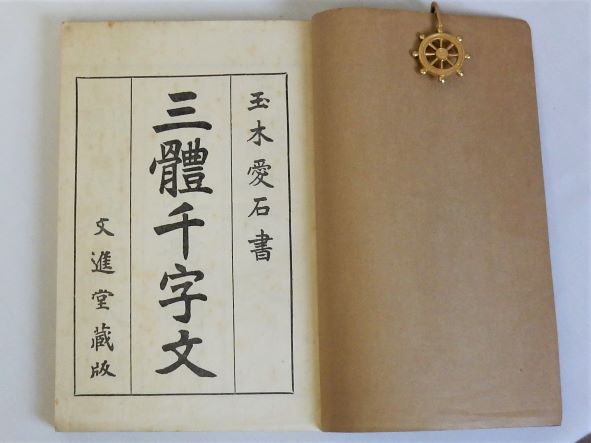 玉木愛石書
三體千字文
文進堂藏版